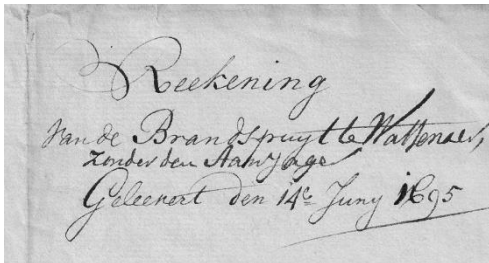 Reekening
van de Brandspuyt te Wassenaer,
zonder den Aanjager
Geleevert den 14e Juny 1695